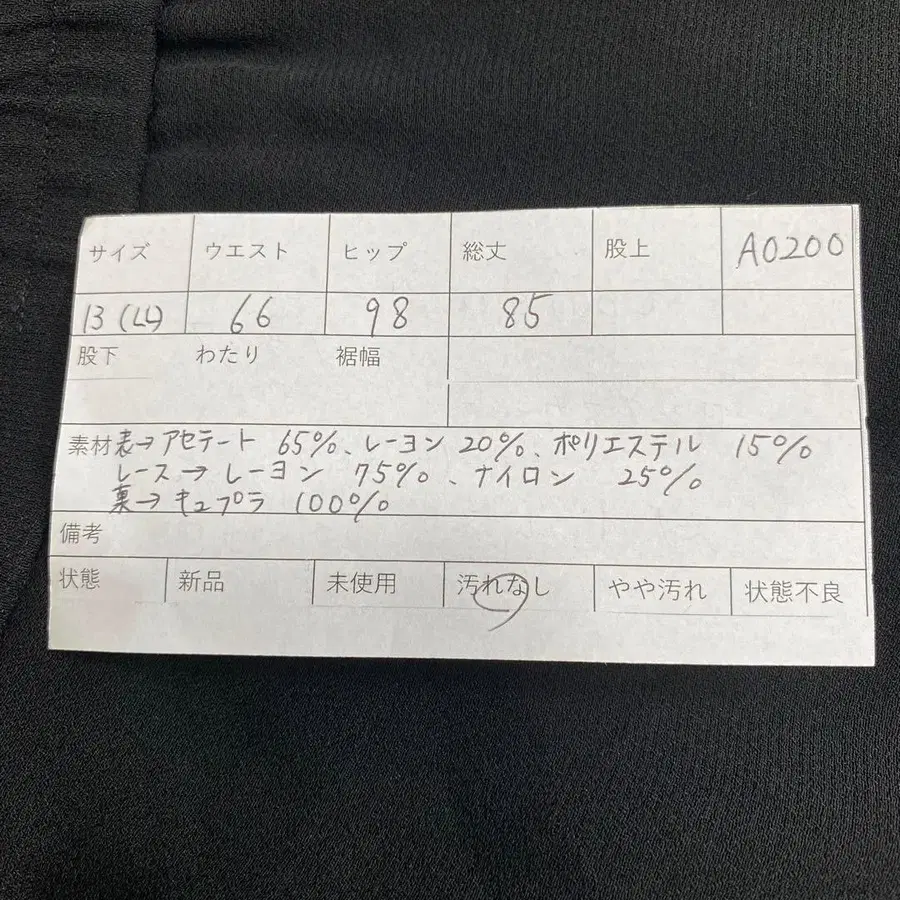 サイズ ウエスト ヒップ 総丈 股上 A0200
13 (LL) 66 98 85
股下 わたり 裾幅
素材 表→アセテート 65%、レーヨン 20%、ポリエステル 15%
レース→レーヨン 75%、ナイロン 25%
裏→キュプラ 100%
備考
状態 新品 未使用 汚れなし やや汚れ 状態不良